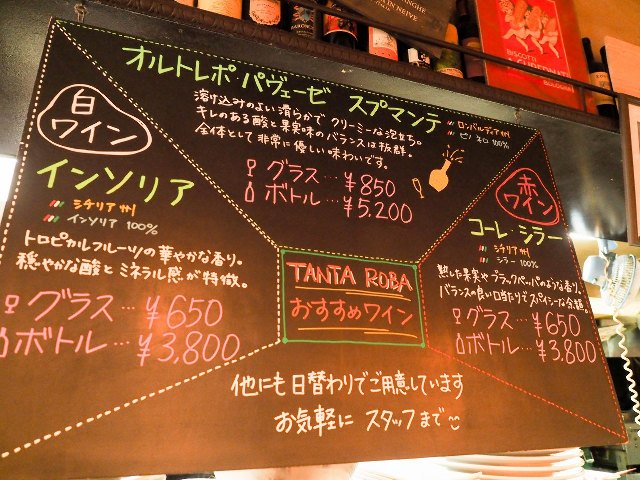 オルトレポ・パヴェーゼ スプマンテ
ロンバルディア州
ピノ ネロ 100%
溶け込みのよい滑らかで クリーミーな泡立ち。
キレのある酸と果実味のバランスは抜群。
全体として非常に優しい味わいです。
グラス…¥850
ボトル…¥5,200
白
ワイン
インソリア
シチリア州
インソリア 100%
トロピカルフルーツの華やかな香り。
穏やかな酸と ミネラル感が特徴。
グラス…¥650
ボトル…¥3,800
赤
ワイン
コーレ・シラー
シチリア州
シラー 100%
熟した果実やブラックペッパのような香り。
バランスの良い口当たりでスパイシーな余韻。
グラス…¥650
ボトル…¥3,800
TANTA ROBA
おすすめワイン
他にも日替わりでご用意しています
お気軽に スタッフまで
IN NEIVE
BISCOTTI